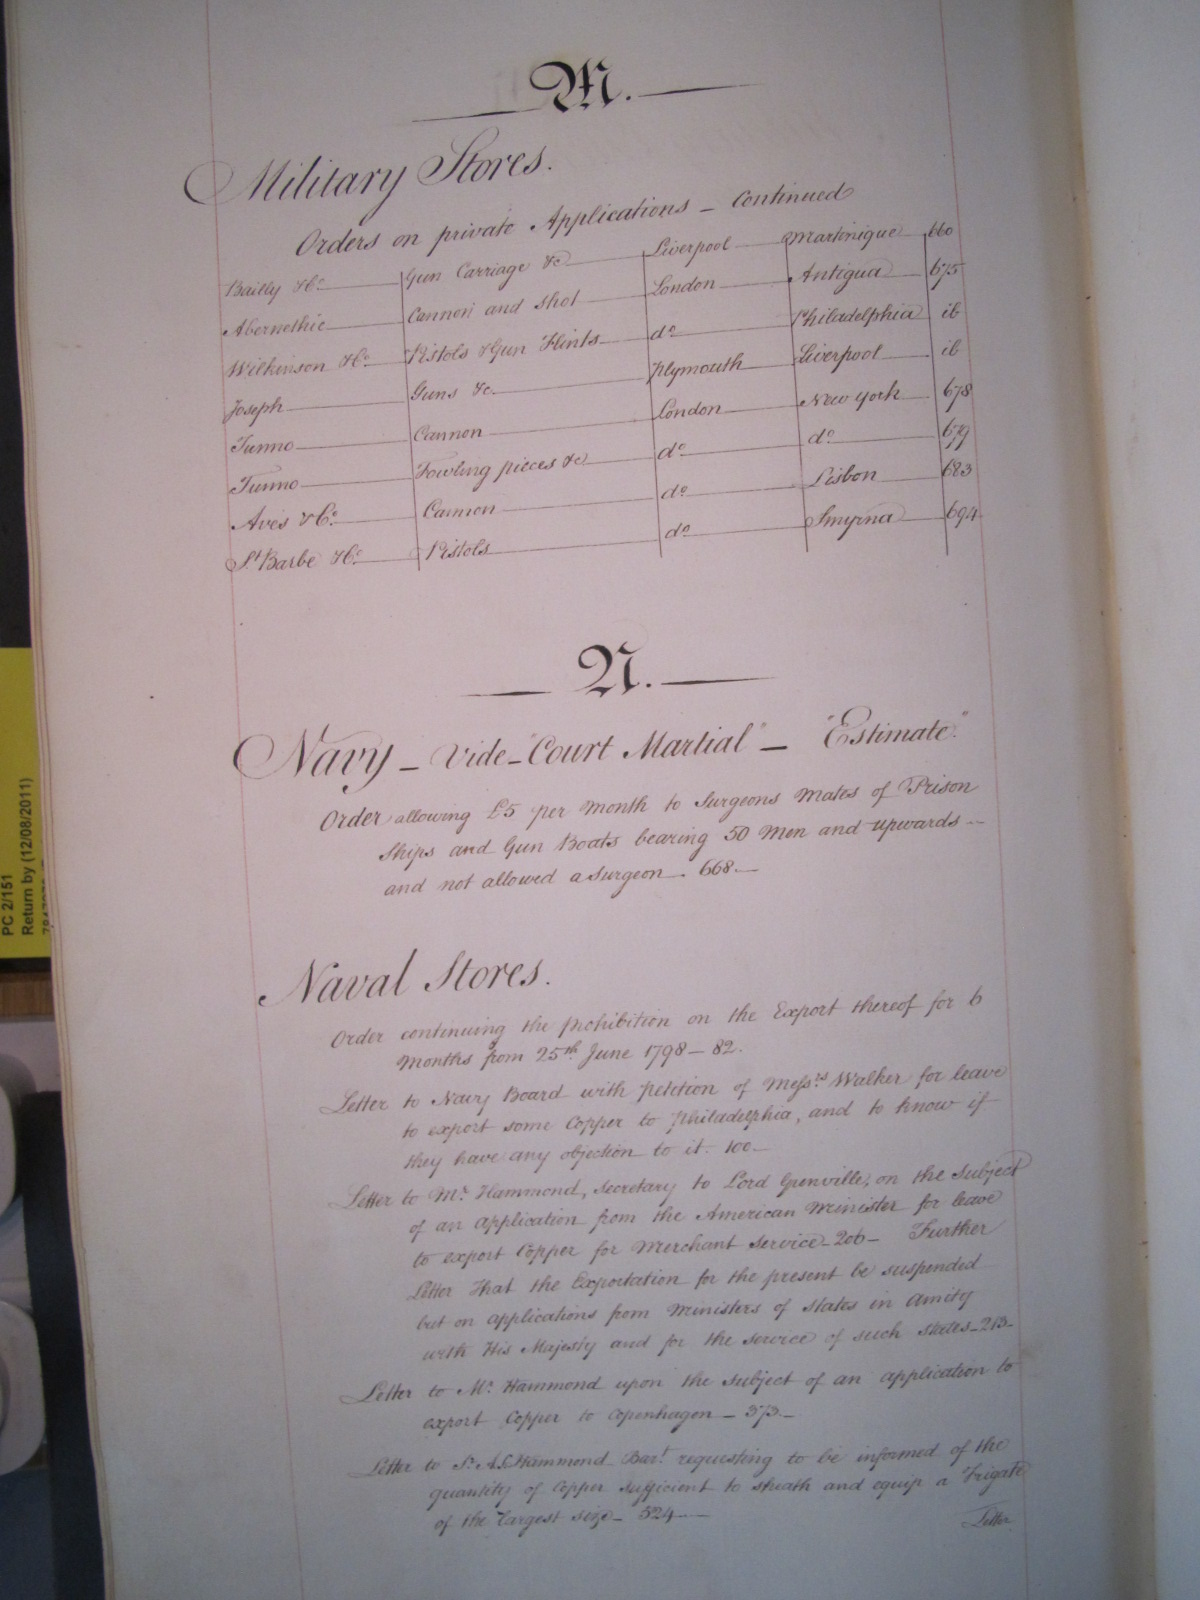 M.
Military Stores.
Orders on private Applications - Continued
Bailly & Co. Gun Carriage &c Liverpool Martinique 660
Abernethie Cannon and Shot London Antigua 675
Wilkinson & Co. Pistols & Gun Flints do Philadelphia ib
Joseph Guns &c. Plymouth Liverpool ib
Tunno Cannon London New York 678
Tunno Fowling pieces &c do do 679
Aves & Co. Cannon do Lisbon 683
St Barbe & Co. Pistols do Smyrna 694
N.
Navy - Vide "Court Martial" - "Estimate".
Order allowing £5 per month to Surgeons Mates of Prison
Ships and Gun Boats bearing 50 Men and upwards -
and not allowed a Surgeon. 668.
Naval Stores.
Order continuing the prohibition on the Export thereof for 6
Months from 25th June 1798 - 82.
Letter to Navy Board with petition of Messrs Walker for leave
to export some Copper to Philadelphia, and to know if
they have any objection to it. 100.
Letter to Mr. Hammond, Secretary to Lord Grenville, on the subject
of an application from the American Minister for leave
to export Copper for Merchant Service - 206 - Further
Letter That the Exportation for the present be suspended
but on applications from Ministers of States in Amity
with His Majesty and for the service of such states - 213 -
Letter to Mr. Hammond upon the subject of an application to
export Copper to Copenhagen - 373. -
Letter to Sr. A.S. Hammond Bart. requesting to be informed of the
quantity of Copper sufficient to sheath and equip a Frigate
of the largest size - 524
Letter
PC 2/151
Return by (12/08/2011)